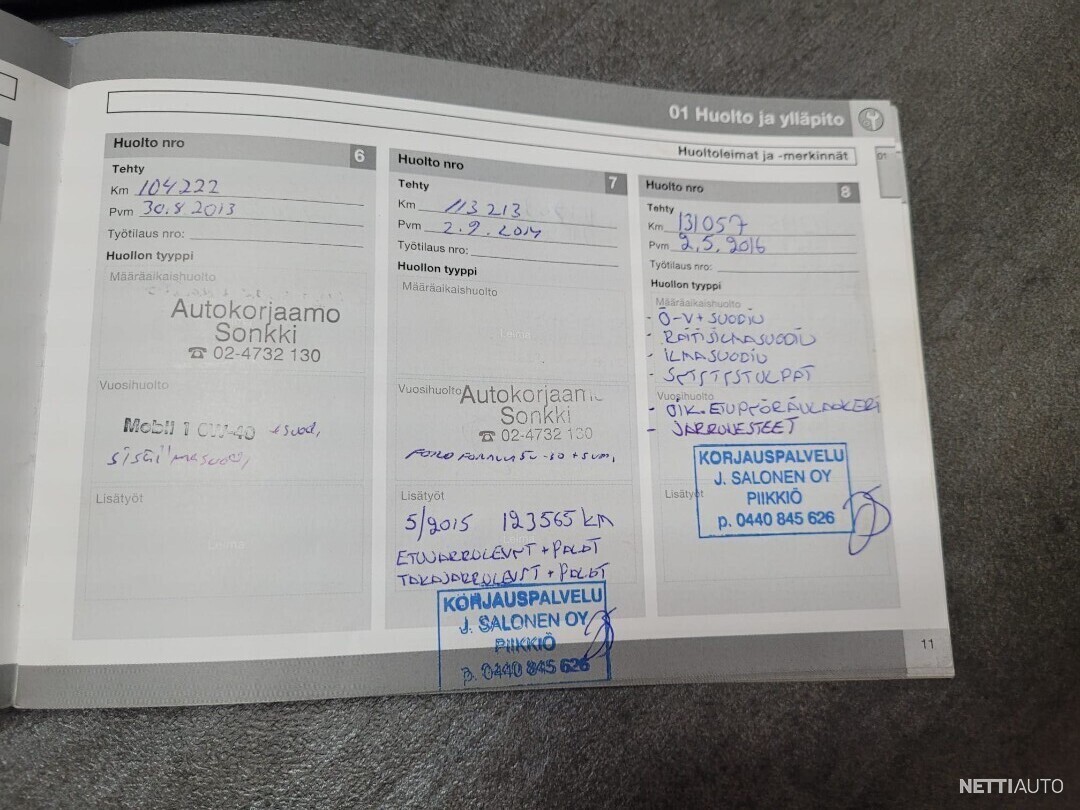 01 Huolto ja ylläpito
Huoltoleimat ja -merkinnät
01
Huolto nro 6
Tehty
Km 104222
Pvm 30.8.2013
Työtilaus nro:
Huollon tyyppi
Määräaikaishuolto
Autokorjaamo
Sonkki
☎ 02-4732 130
Vuosihuolto
Mobil 1 0W-40 + suod,
Lisätyöt
Leima
Huolto nro 7
Tehty
Km 113213
Pvm 2.9.2014
Työtilaus nro:
Huollon tyyppi
Määräaikaishuolto
Leima
Vuosihuolto
Autokorjaam
Sonkki
☎ 02-4732 130
FORD FORMULA 5W-30 +
Lisätyöt
5/2015 123565 KM
Leima
ETUJARRULEVYT + PALAT
TAKAJARRULEVYT + PALAT
KORJAUSPALVELU
J. SALONEN OY
PIIKKIÖ
p. 0440 845 626
Huolto nro 8
Tehty
Km 131057
Pvm 2.5.2016
Työtilaus nro:
Huollon tyyppi
Määräaikaishuolto
- Ö-V + SUODIN
- RAITISILMASUODIN
- ILMASUODIN
- SYTYTYSTULPAT
Vuosihuolto
- OIK. ETUPYÖRÄLAAKERI
- JARRUNESTEET
KORJAUSPALVELU
J. SALONEN OY
PIIKKIÖ
p. 0440 845 626
Lisätyöt
11
NETTIAUTO